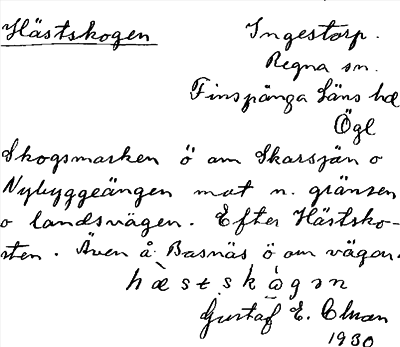 Hästskogen
Ingestorp.
Regna sn.
Finspånga läns hd
Ögl
Skogsmarken ö om Skarsjön o
Nybyggeängen mot n. gränsen
o landsvägen. Efter Hästsko-
sten. Även å Basnäs ö om vägen.
hæstskògən
Gustaf E. Olman
1930